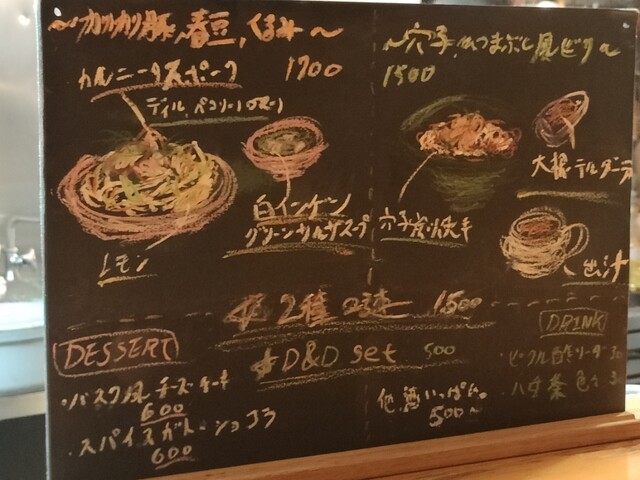 〜カリカリ豚,春豆,くるみ〜
カルニータスポーク 1700
ディル,ペコリーノロマーノ
レモン
白インゲン
グリーンサルサスープ
〜穴子ひつまぶし風ピラフ〜
1500
大根
穴子炭火焼き
出し汁
2種 1500
DESSERT
・バスク風チーズケーキ
600
・スパイスガトーショコラ
600
D&D set 500
DRINK
・ピクル酢ソーダ
・八女茶 色々
他酒いっぱい。
500〜